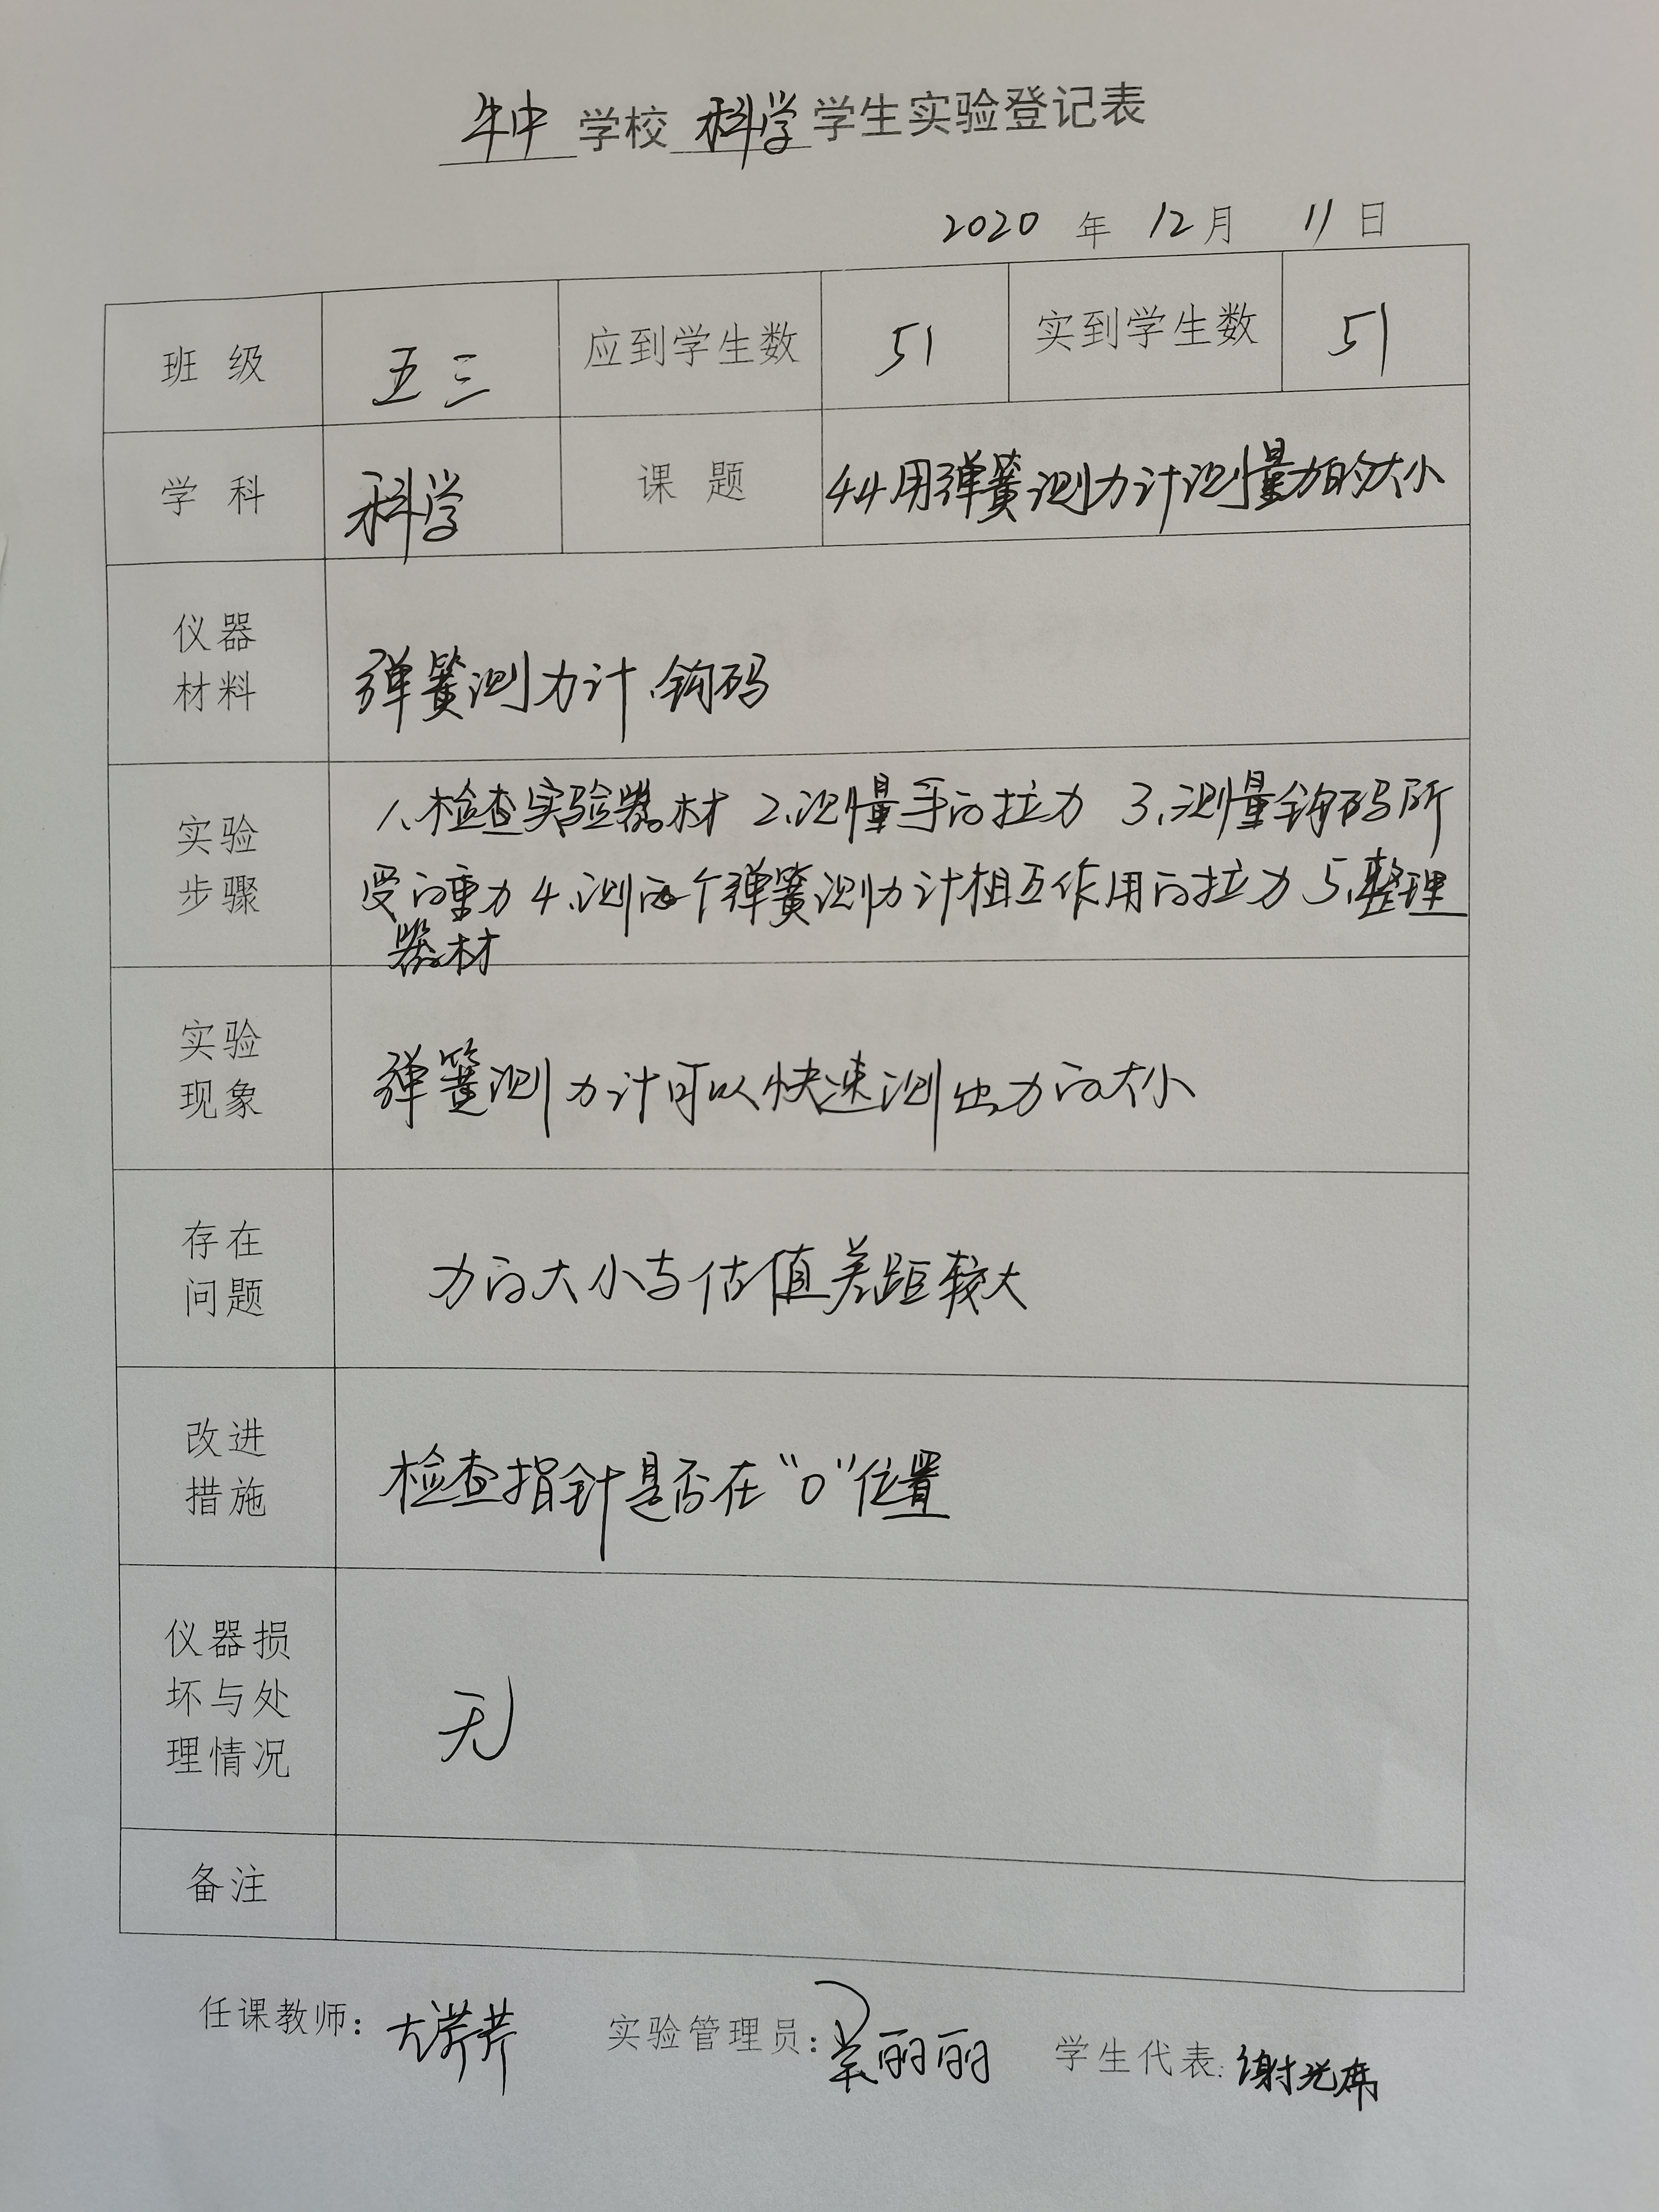 牛中 学校 科学 学生实验登记表
2020 年 12 月 11 日
班 级 五三 应到学生数 51 实到学生数 51
学 科 科学 课 题 4.4用弹簧测力计测量力的大小
仪器
材料
弹簧测力计、钩码
实验
步骤
1、检查实验器材 2、测量手的拉力 3、测量钩码所
受的重力 4、测两个弹簧测力计相互作用的拉力 5、整理
器材
实验
现象
弹簧测力计可以快速测出力的大小
存在
问题
力的大小与估值差距较大
改进
措施
检查指针是否在“0”位置
仪器损
坏与处
理情况
无
备注
任课教师: 实验管理员: 吴丽丽 学生代表: 谢光席